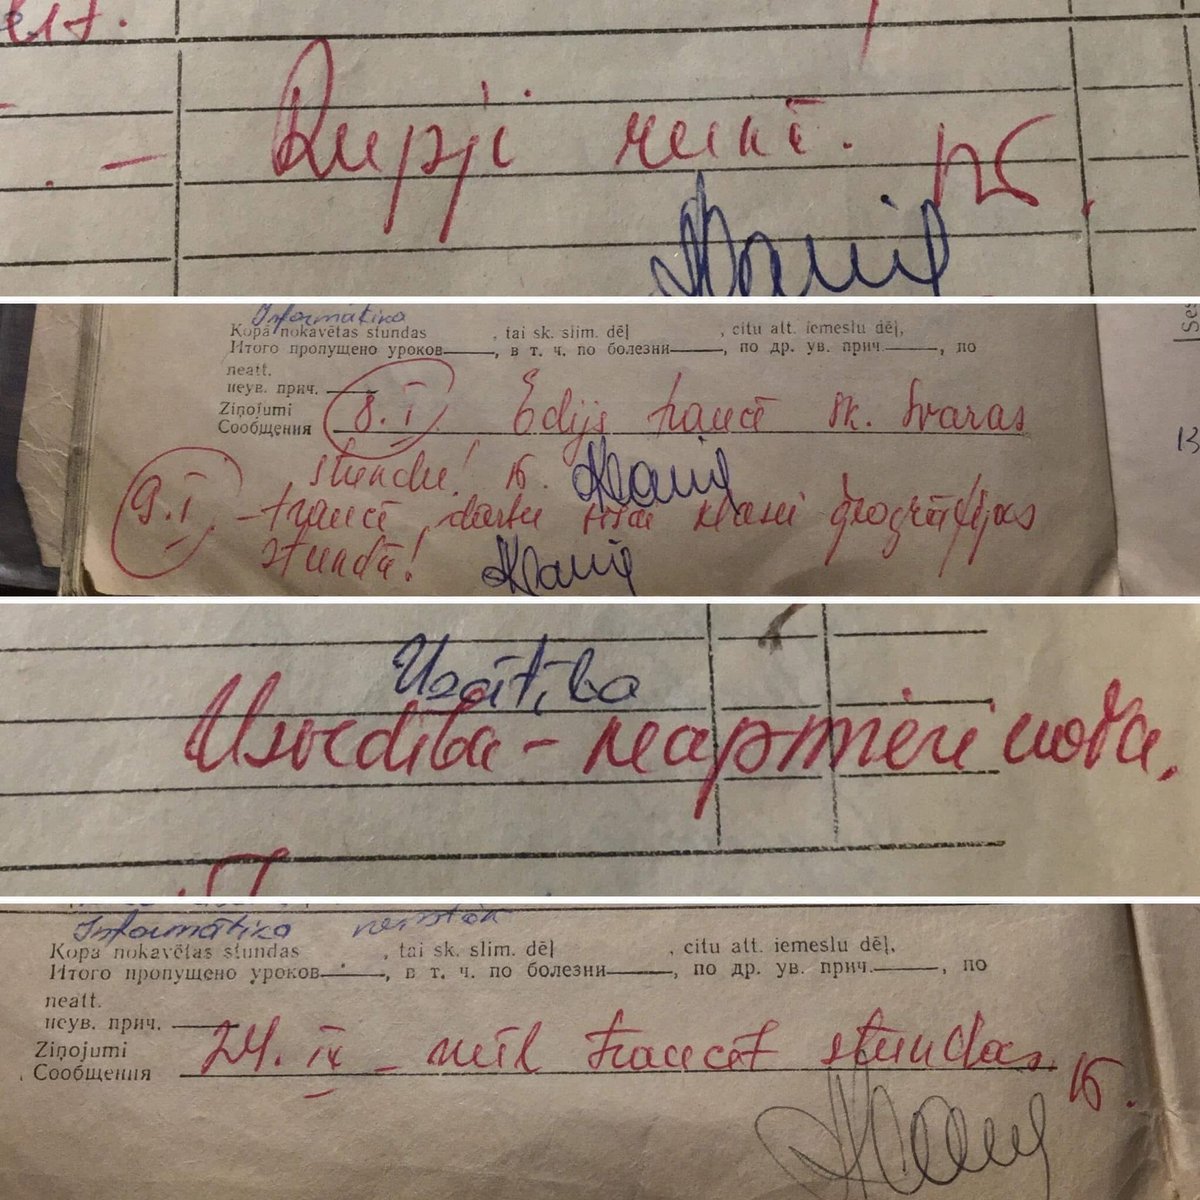 Rupji runā.
Informātika
Kopā nokavētas stundas , tai sk. slim. dēļ , citu att. iemeslu dēļ,
Итого пропущено уроков , в т. ч. по болезни , по др. ув. прич. , по
neatt.
неув. прич.
Ziņojumi 8.I Edijs traucē sk. Svaras
Сообщения
stundu!
9.I - traucē darbu visai klasei ģeogrāfijas
stundā!
Uzcītība
Uzvedība - neapmierinoša.
Informātika
Kopā nokavētas stundas , tai sk. slim. dēļ , citu att. iemeslu dēļ,
Итого пропущено уроков , в т. ч. по болезни , по др. ув. прич. , по
neatt.
неув. прич.
Ziņojumi 24.IX - mīl traucēt stundas.
Сообщения